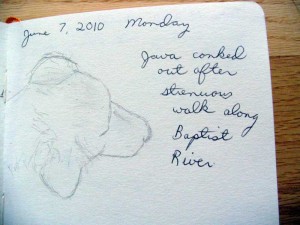 June 7, 2010 Monday
Java conked
out after
strenuous
walk along
Baptist
River